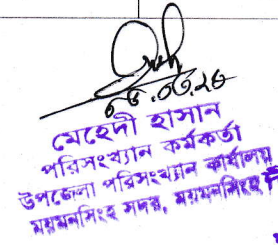 ০৬.০৩.২৬
মেহেদী হাসান
পরিসংখ্যান কর্মকর্তা
উপজেলা পরিসংখ্যান কার্যালয়
ময়মনসিংহ সদর, ময়মনসিংহ